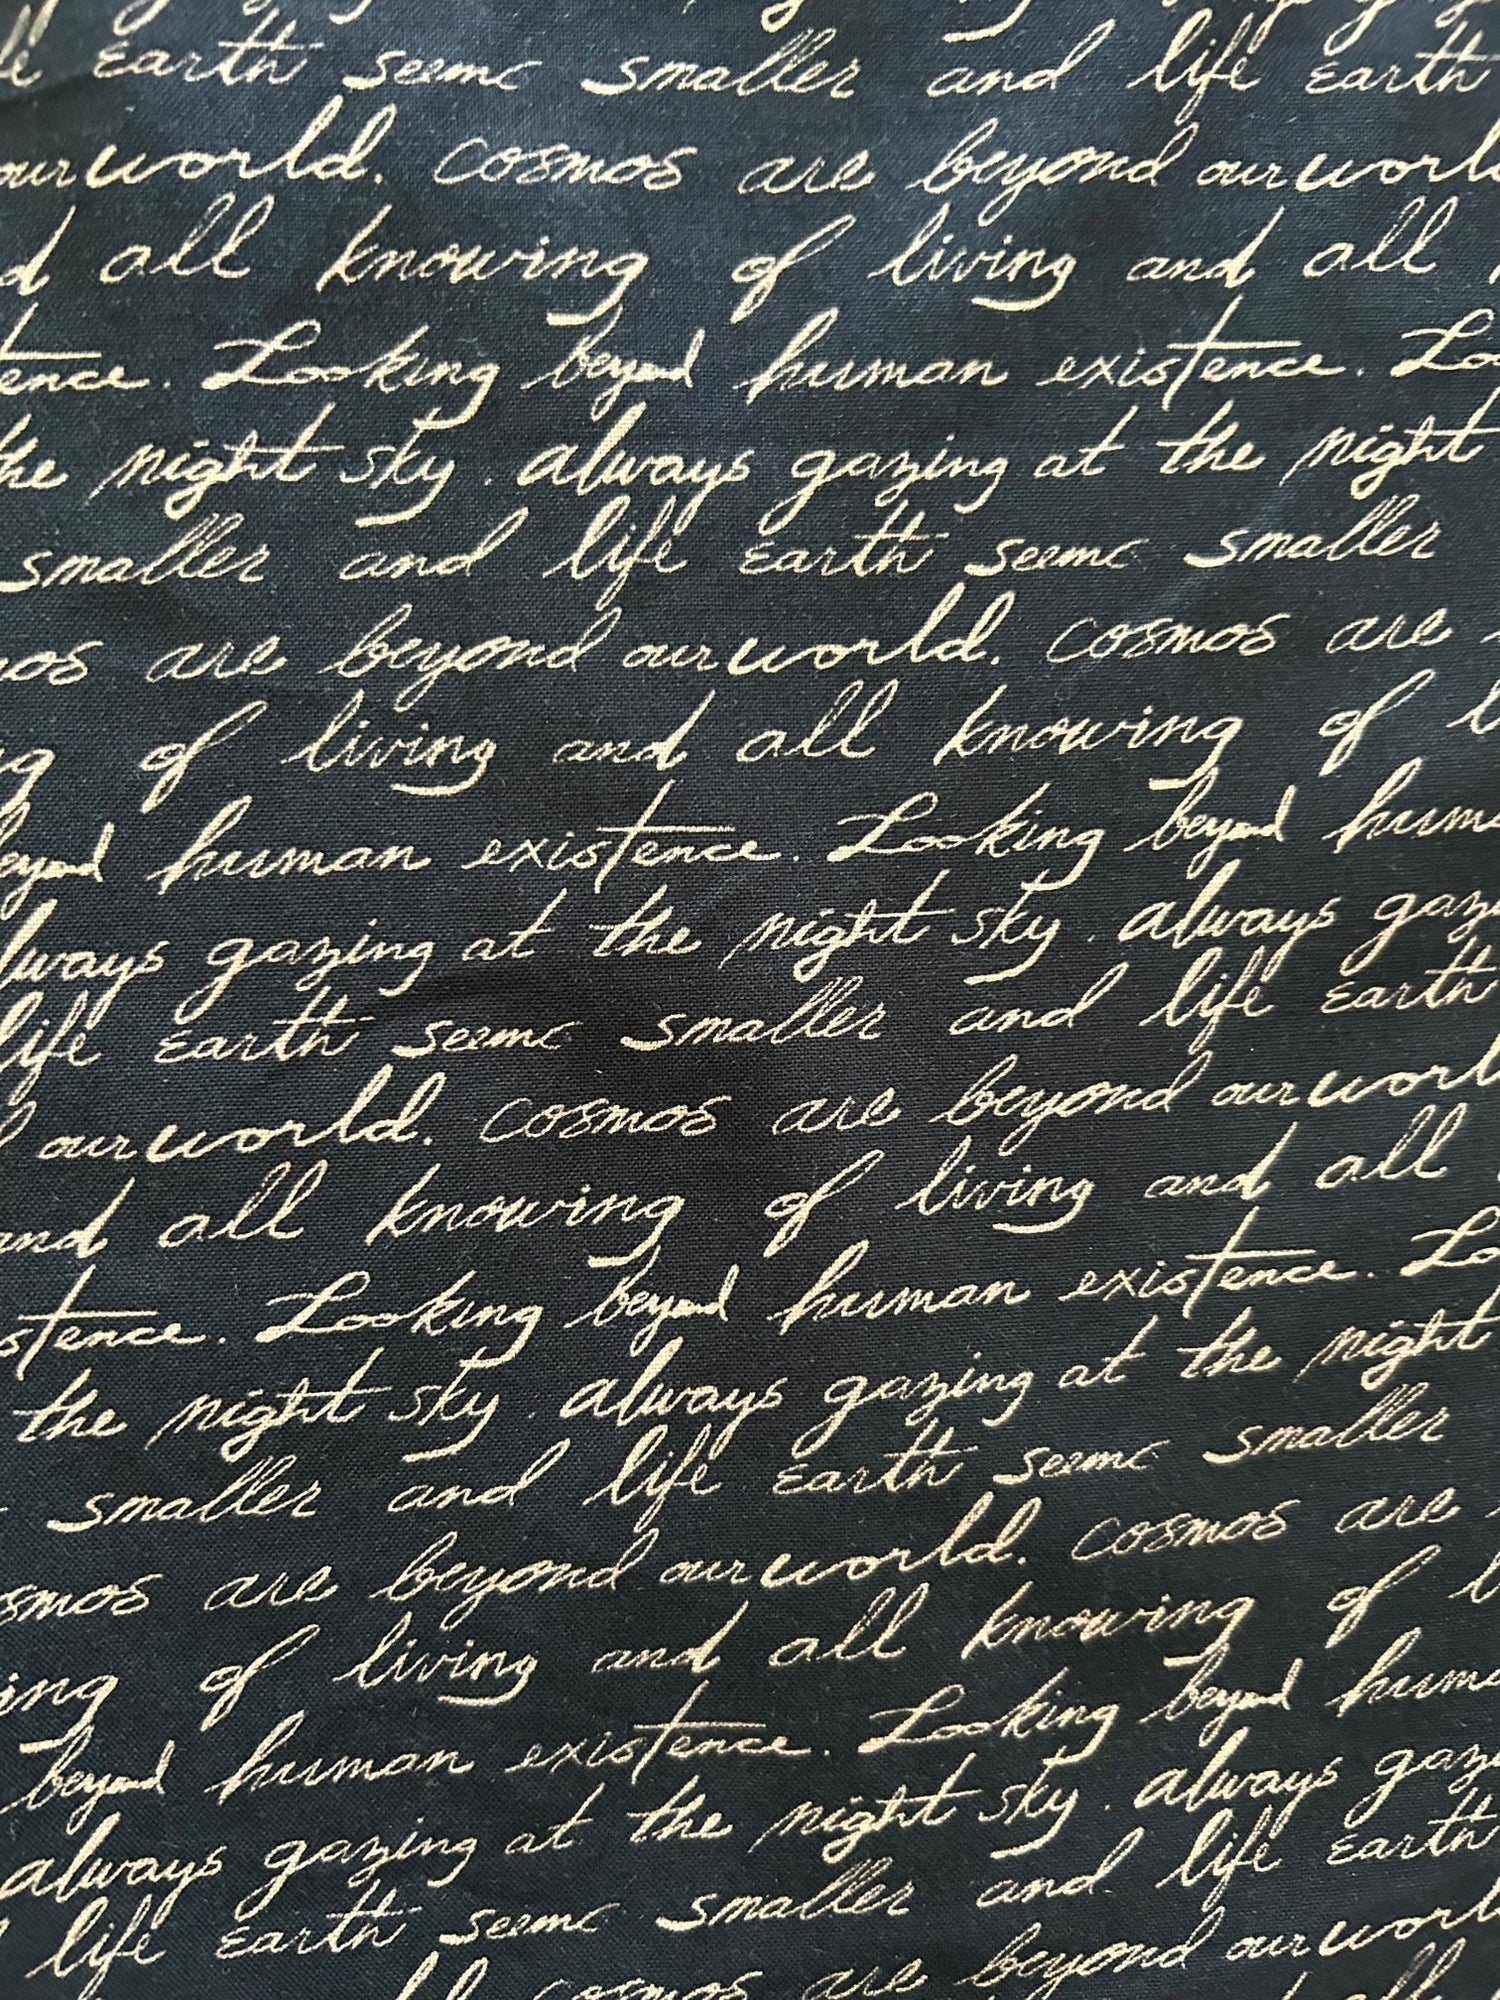 life Earth seems smaller and life Earth
our world. Cosmos are beyond our world
and all knowing of living and all
existence. Looking beyond human existence. Lo
the night sky. always gazing at the night
smaller and life Earth seems smaller
mos are beyond our world. Cosmos are
ng of living and all knowing of l
beyond human existence. Looking beyond huma
always gazing at the night sky. always gaz
life Earth seems smaller and life Earth
our world. Cosmos are beyond our worl
and all knowing of living and all
stence. Looking beyond human existence. Lo
the night sky. always gazing at the night
smaller and life Earth seems smaller
osmos are beyond our world. Cosmos are
ing of living and all knowing of l
beyond human existence. Looking beyond huma
always gazing at the night sky. always gaz
life Earth seems smaller and life Earth
cosmos are beyond our worl